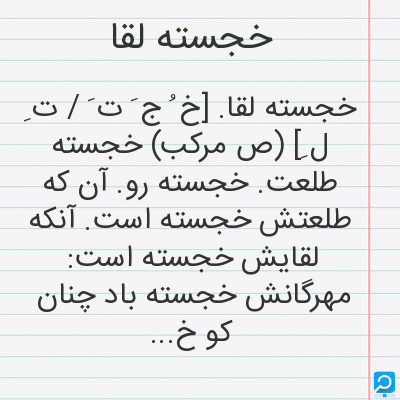 خجسته لقا
خجسته لقا. [خ ُ ج َ ت َ / ت ِ
ل ِ] (ص مرکب) خجسته
طلعت. خجسته رو. آن که
طلعتش خجسته است. آنکه
لقایش خجسته است:
مهرگانش خجسته باد چنان
کو خ...